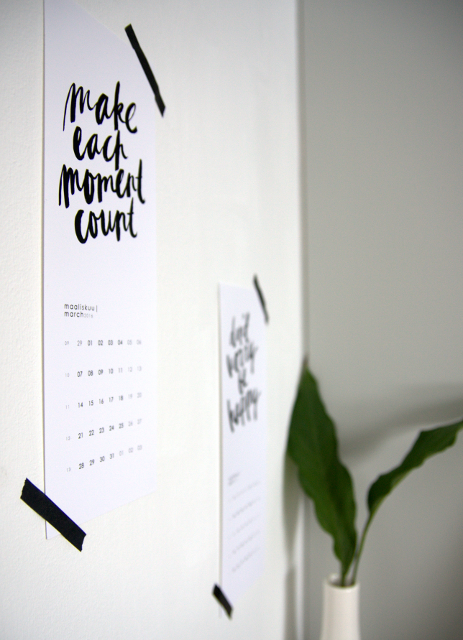 make
each
moment
count
maaliskuu |
march2016
09 29 01 02 03 04 05 06
10 07 08 09 10 11 12 13
11 14 15 16 17 18 19 20
12 21 22 23 24 25 26 27
13 28 29 30 31 01 02 03
don't
worry
be
happy